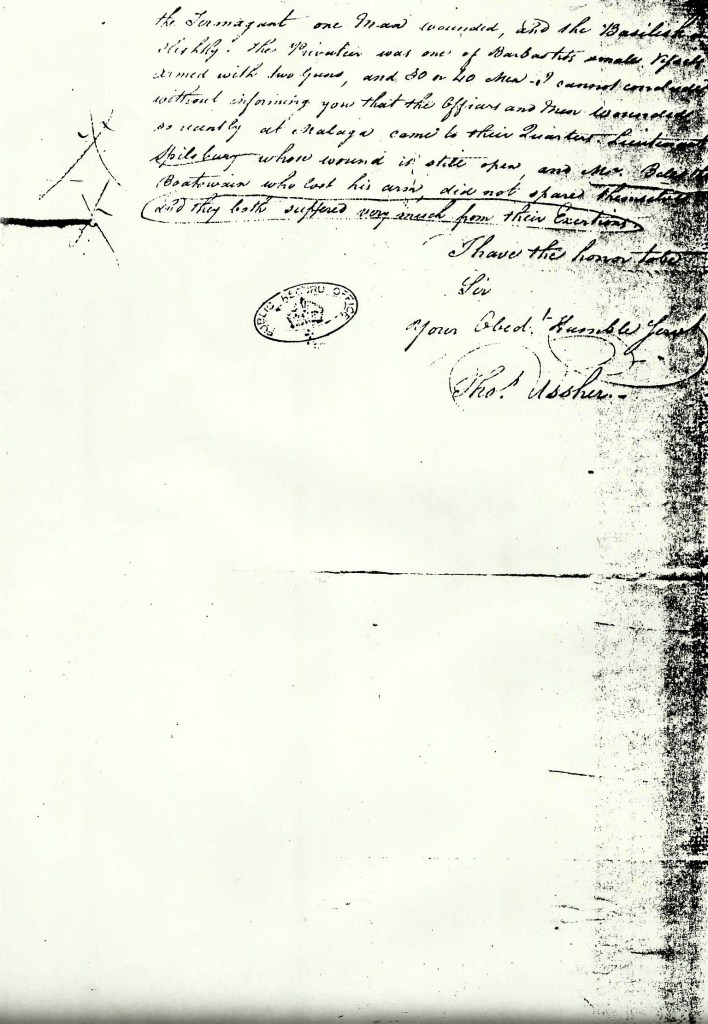 the Termagant one Man wounded, and the Basilisk
slightly. The Privateer was one of Barbastits small Vessels
armed with two Guns, and 30 or 40 Men. I cannot conclude
without informing you that the Officers and Men wounded
so recently at Malaga came to their Quarters Lieutenant
Spilsbury whose wound is still open, and Mr.
Boatswain who lost his arm, did not spare themselves
and they both suffered very much from their Exertions.
I have the honor to be
Sir
Your Obedt. Humble Servt
Thos. Ussher.
PUBLIC RECORD OFFICE